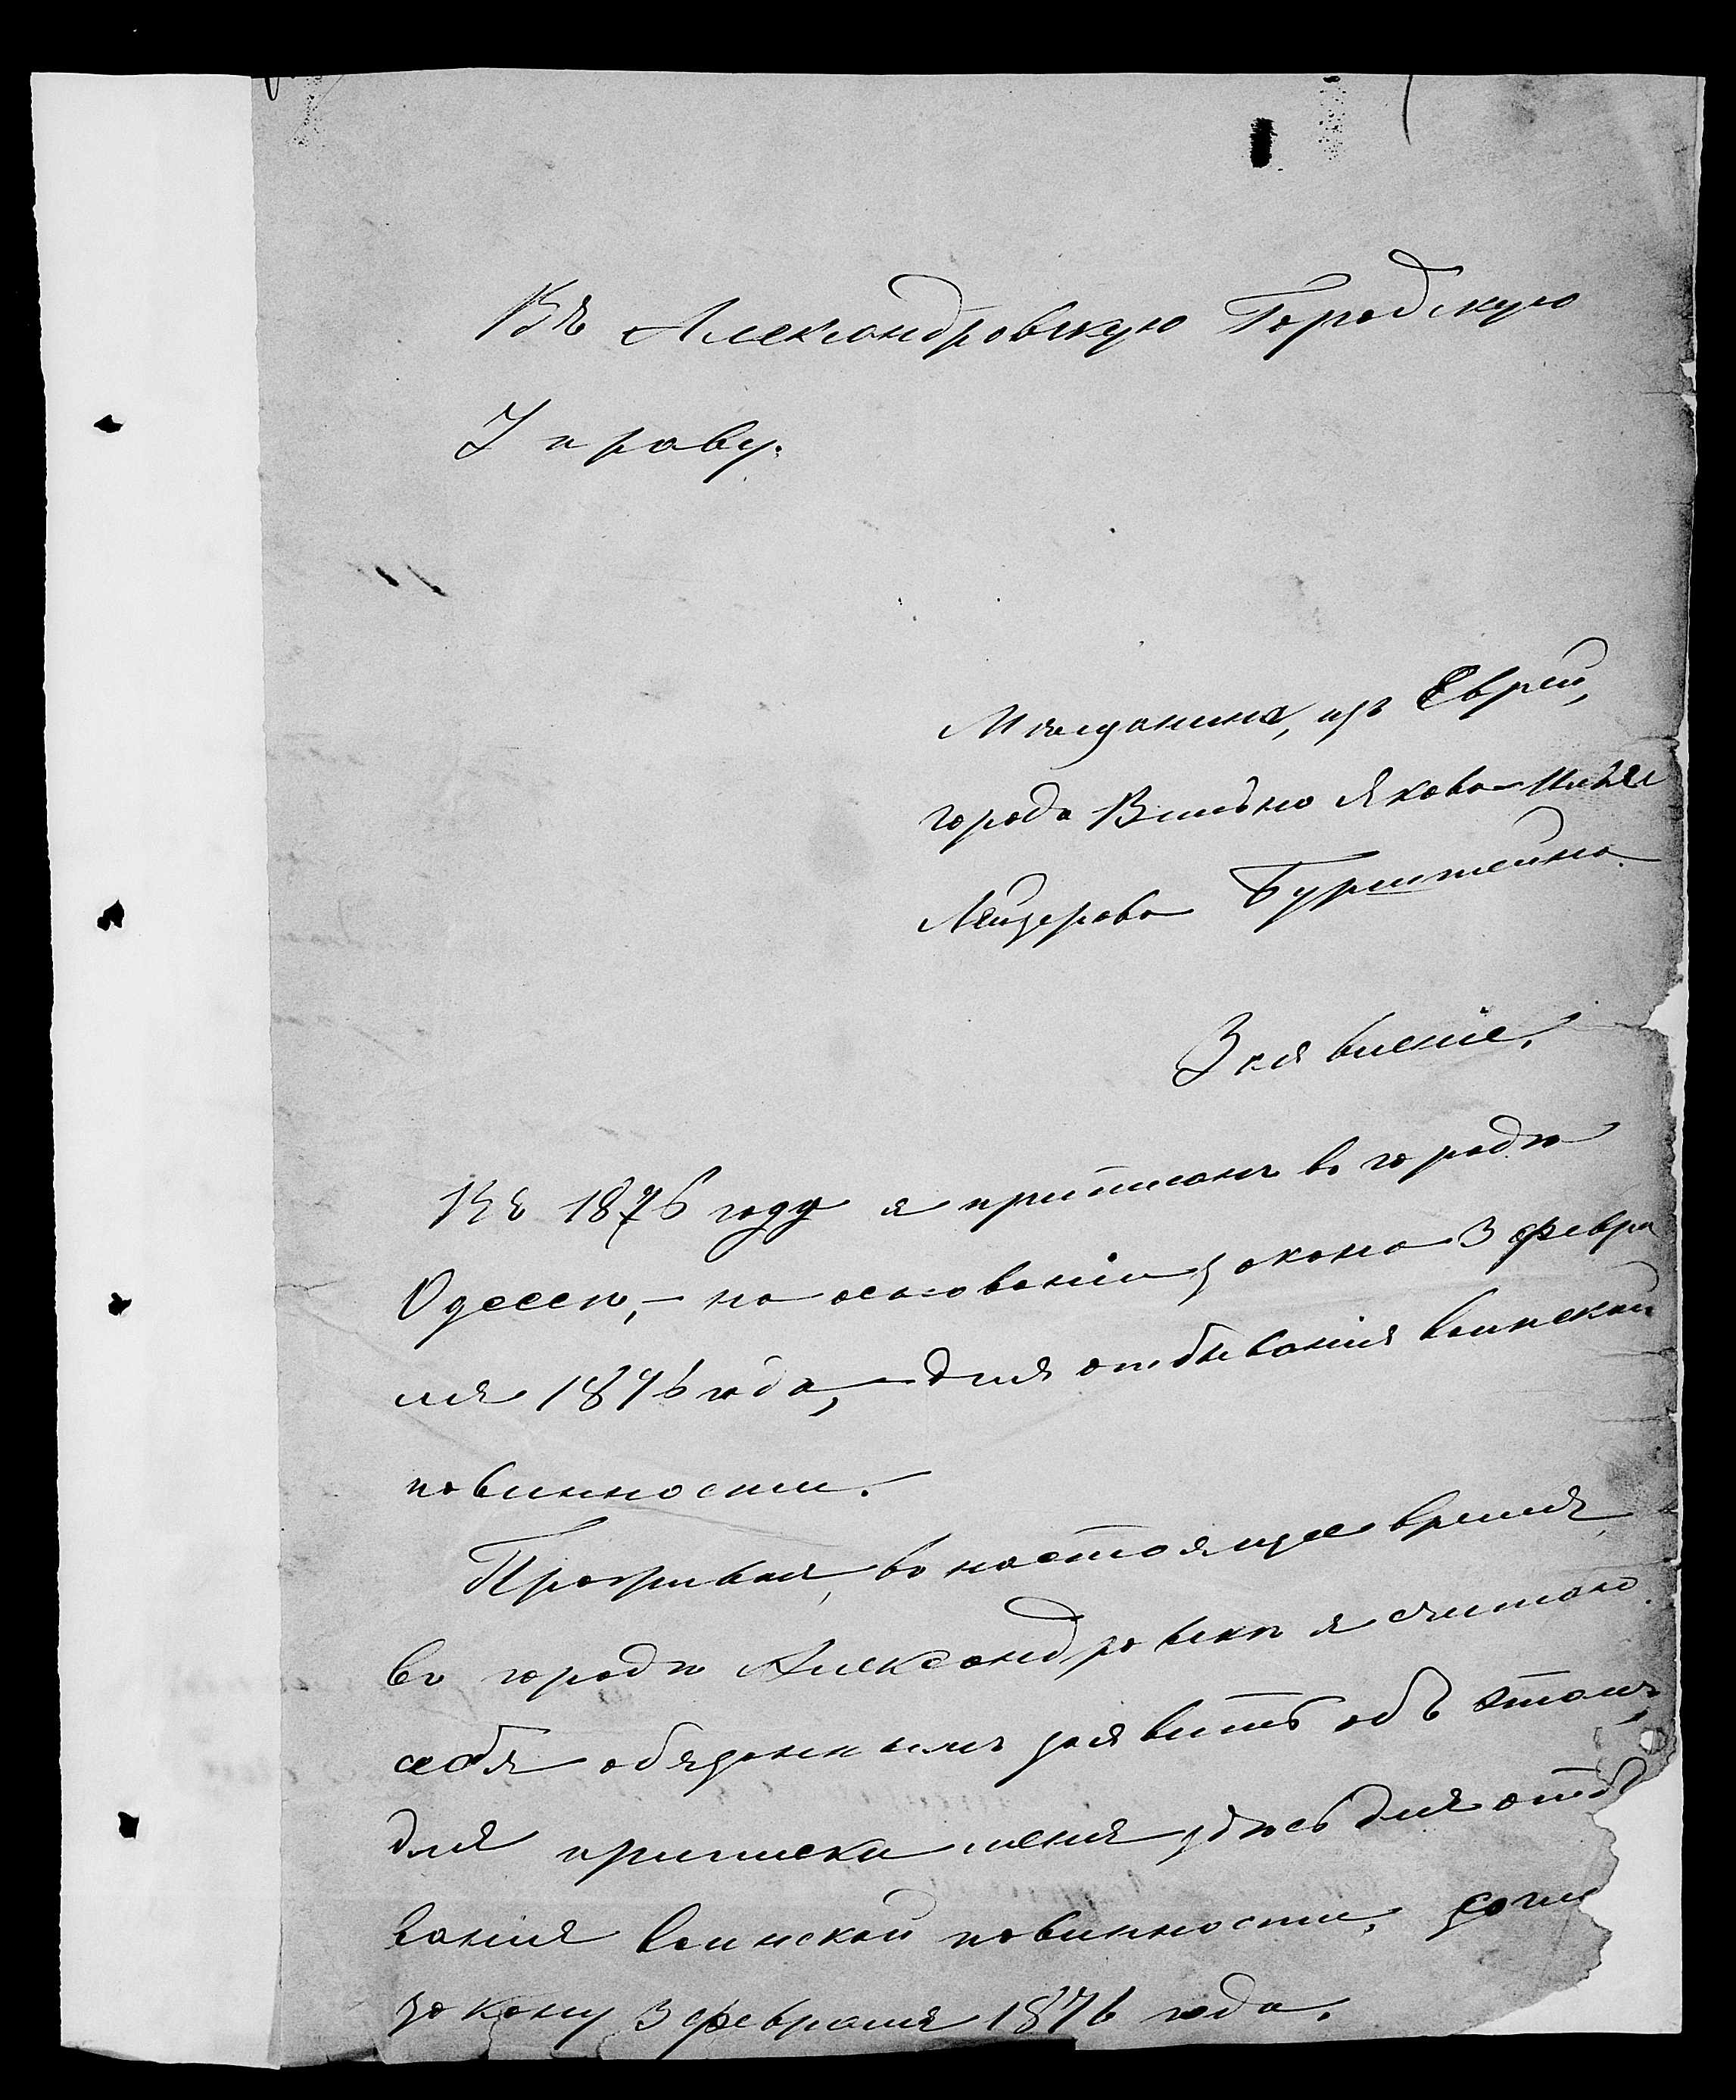 Въ Александровскую Городскую
Управу.
Мѣщанина, изъ Еврей,
города Вильно Якова
Лейзерова Бурштейна.
Заявленіе.
Въ 1876 году я приписанъ въ городѣ
Одессѣ, – на основаніи закона 3 февра
ля 1876 года, – для отбыванія воинской
повинности.
Проживая, въ настоящее время,
въ городѣ Александровскѣ я считаю
себя обязаннымъ заявить объ этомъ,
для приписки меня здѣсь для отбы
ванія воинской повинности, согла
закону 3 февраля 1876 года.